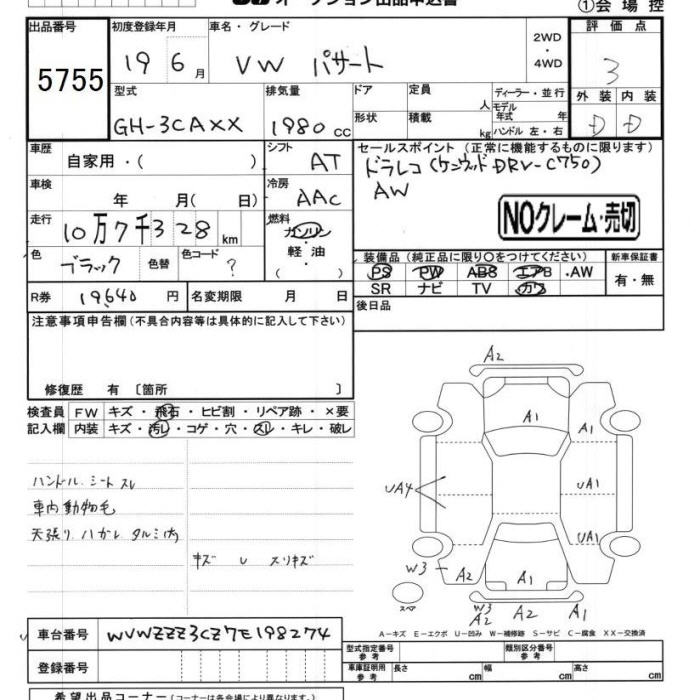 オークション出品申込書
①会場控
出品番号 初度登録年月 車名・グレード 2WD・4WD 評価点
5755 19 6月 VW パサート 3
型式 排気量 ドア 定員 人 ディーラー・並行 外装 内装
形状 積載 kg モデル年式 年 ハンドル 左・右
GH-3CAXX 1980cc D D
車歴 自家用・( ) シフト AT セールスポイント (正常に機能するものに限ります)
ドラレコ(ケンウッドDRV-C750)
車検 年 月( 日) 冷房 AAC AW
走行 10万7千328km 燃料 ガソリン・軽油・( )
NOクレーム・売切
色 ブラック 色替 色コード ?
装備品(純正品に限り○をつけてください) 新車保証書
PS PW ABS エアB ・AW 有・無
SR ナビ TV カワ
R券 19,640円 名変期限 月 日 後日品
注意事項申告欄(不具合内容等は具体的に記入して下さい)
修復歴 有 〔箇所 〕
検査員記入欄 FW キズ・飛石・ヒビ割・リペア跡・×要
内装 キズ・汚レ・コゲ・穴・スレ・キレ・破レ
ハンドル シート スレ
車内動物毛
天張り ハガレ タルミ 汚
キズ U スリキズ
A2
A1
UA4 UA1
UA1
W3 A2 A1
スペア W3 A2 A2 A1
A-キズ E-エクボ U-凹み W-補修跡 S-サビ C-腐食 XX-交換済
車台番号 WVWZZZ3CZ7E198274
登録番号
型式指定番号 参考 類別区分番号 参考
車庫証明用 参考 長さ cm 幅 cm 高さ cm
希望出品コーナー(コーナーは各会場により異なります。)